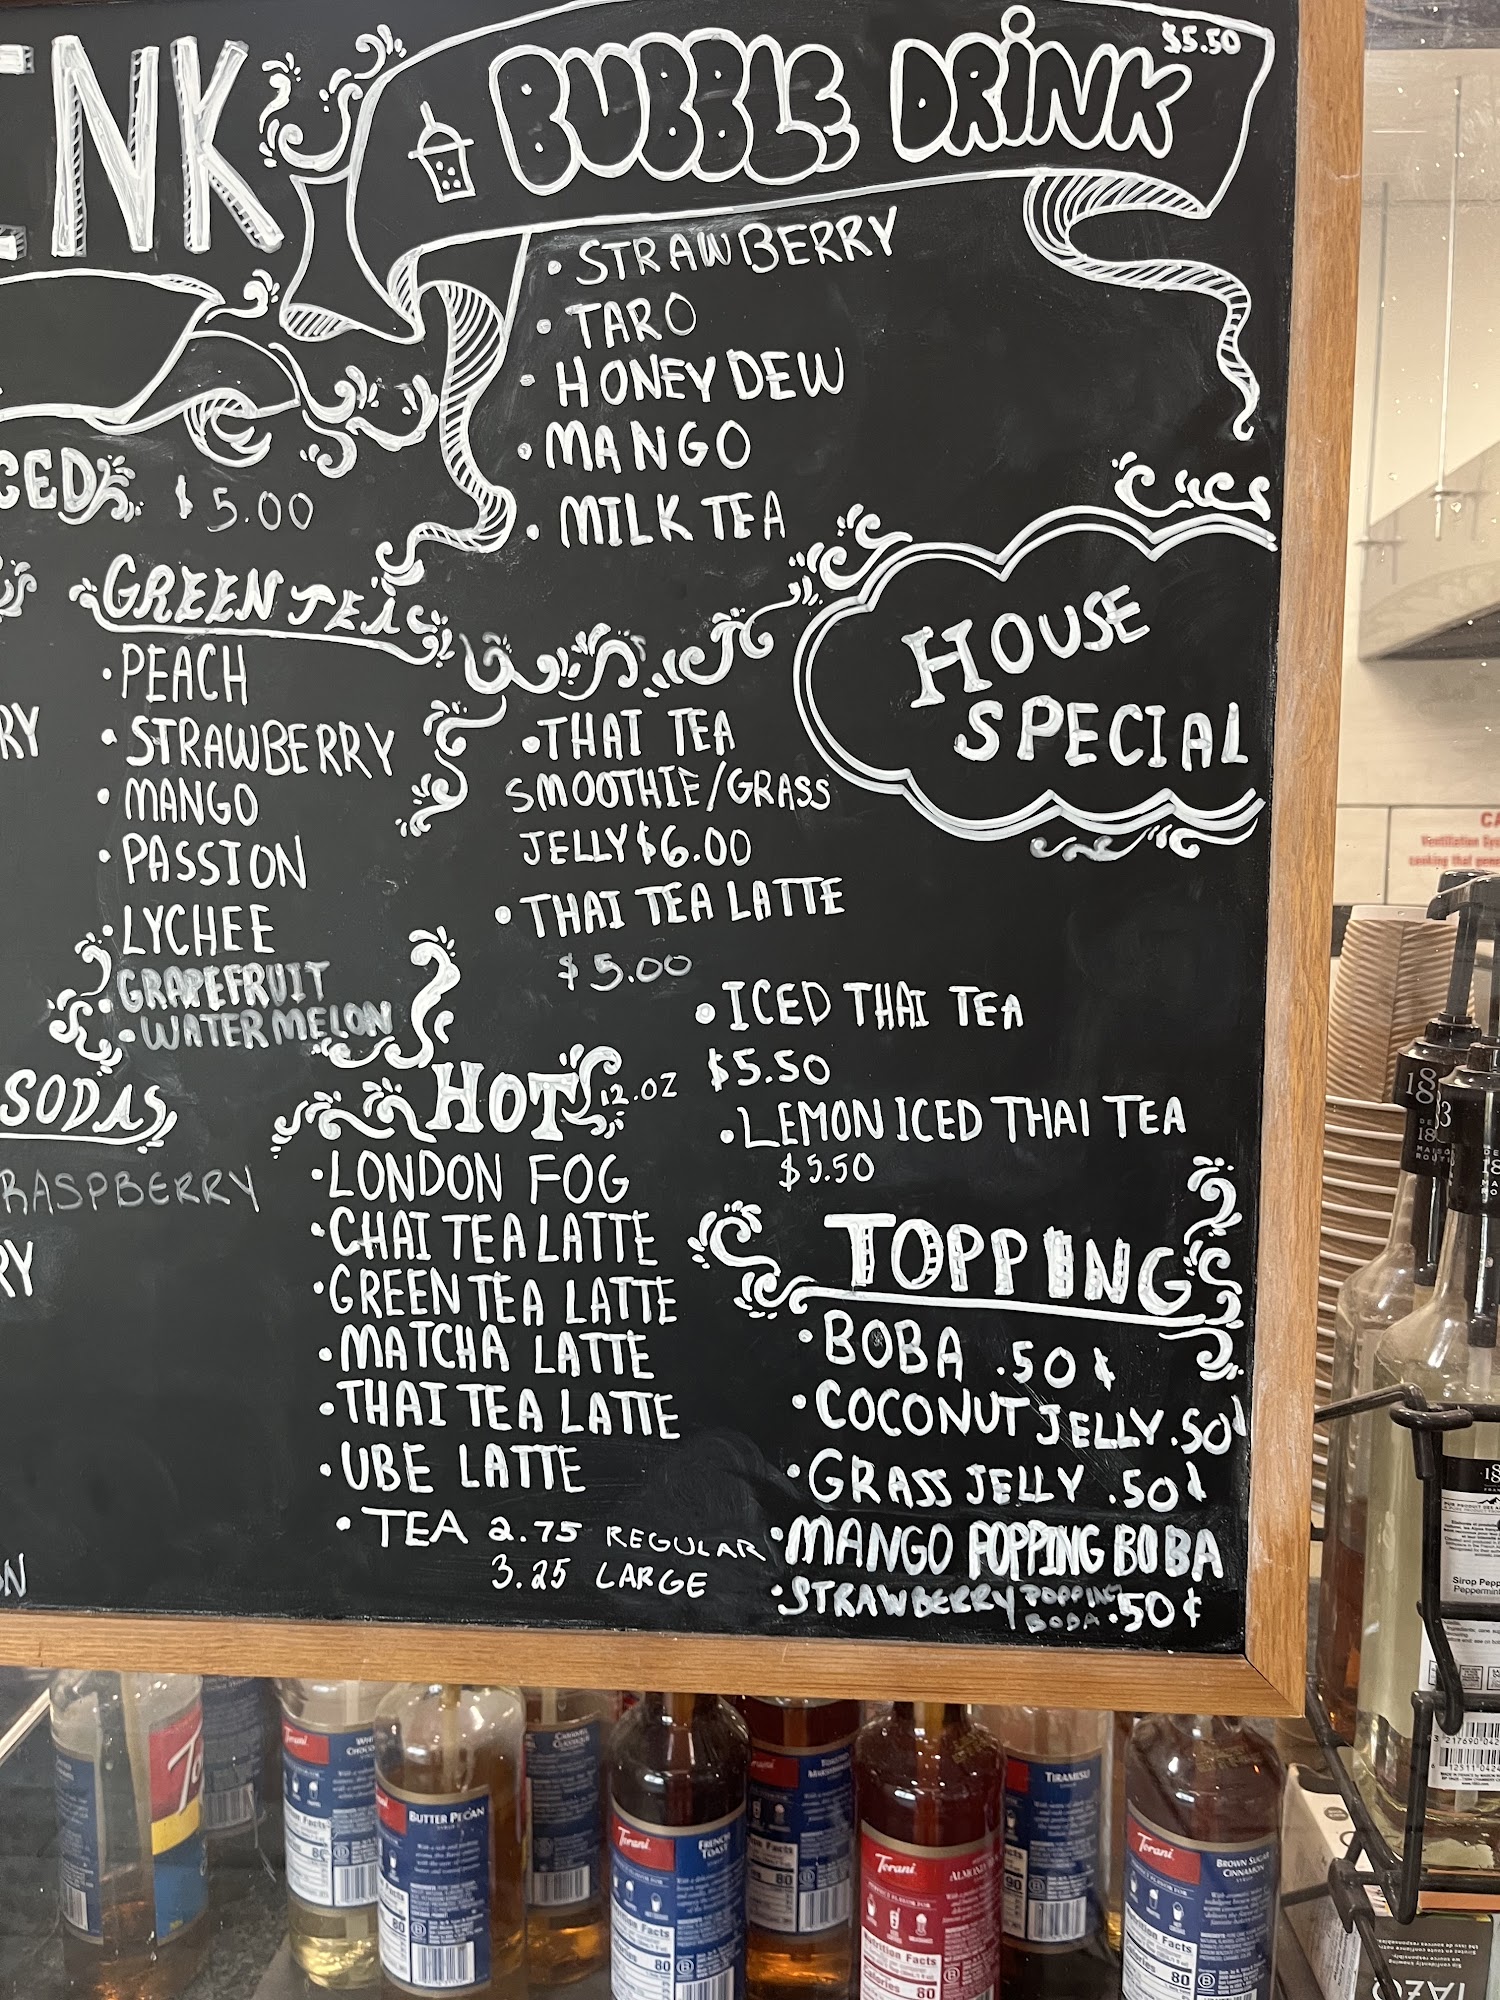 BUBBLE DRINK $5.50
• STRAWBERRY
• TARO
• HONEY DEW
• MANGO
• MILK TEA
$5.00
GREEN TEAS
• PEACH
• STRAWBERRY
• MANGO
• PASSION
• LYCHEE
• GRAPEFRUIT
• WATERMELON
SODAS
RASPBERRY
HOUSE
SPECIAL
• THAI TEA
SMOOTHIE/GRASS
JELLY $6.00
• THAI TEA LATTE
$5.00
• ICED THAI TEA
$5.50
• LEMON ICED THAI TEA
$5.50
HOT 12.OZ
• LONDON FOG
• CHAI TEA LATTE
• GREEN TEA LATTE
• MATCHA LATTE
• THAI TEA LATTE
• UBE LATTE
• TEA 2.75 REGULAR
3.25 LARGE
TOPPING
• BOBA .50¢
• COCONUT JELLY .50¢
• GRASS JELLY .50¢
• MANGO POPPING BOBA
• STRAWBERRY POPPING BOBA .50¢
Torani
BUTTER PECAN
80
Torani
FRENCH
TOAST
Nutrition Facts
Calories 80
TOASTED
MARSHMALLOW
80
Torani
Nutrition Facts
Calories 80
TIRAMISU
90
Torani
BROWN SUGAR
CINNAMON
Nutrition Facts
Calories 80
Sirop
TAZO